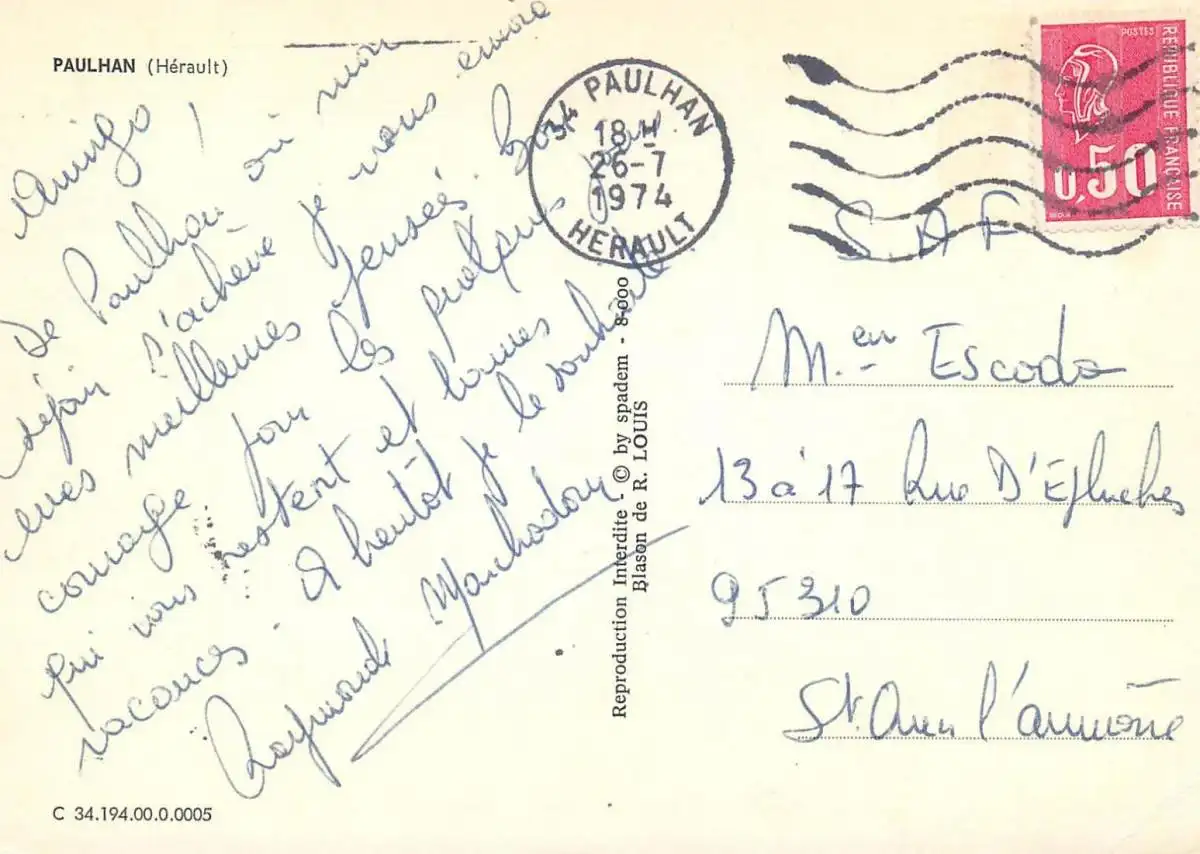 PAULHAN (Hérault)
Amigo !
De Paulhan où mon
séjour s'achève je vous envoie
mes meilleures pensées. Bon
courage pour les quelques jours
qui vous restent et bonnes
vacances. A bientôt je le souhaite
Raymonde
C 34.194.00.0.0005
34 PAULHAN
18 H
26-7
1974
HERAULT
POSTES
REPUBLIQUE FRANCAISE
0,50
Reproduction Interdite - © by spadem - 8-000
Blason de R. LOUIS
S.A F
M.en Escoda
13 à 17 Rue D'Epluches
95310
St. Ouen l'aumône